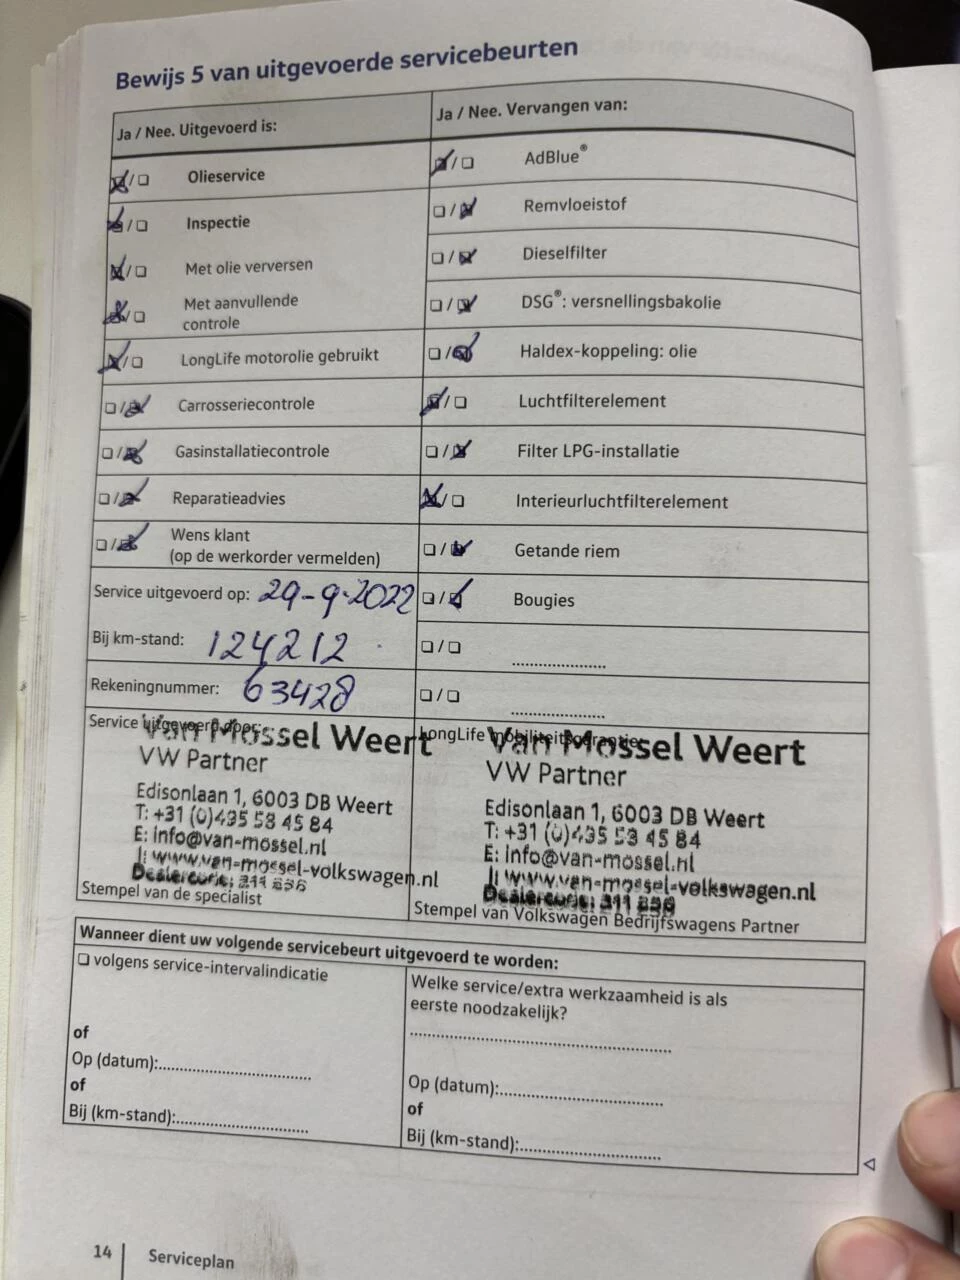 Bewijs 5 van uitgevoerde servicebeurten
Ja / Nee. Uitgevoerd is:
Olieservice
Inspectie
Met olie verversen
Met aanvullende
controle
LongLife motorolie gebruikt
Carrosseriecontrole
Gasinstallatiecontrole
Reparatieadvies
Wens klant
(op de werkorder vermelden)
Service uitgevoerd op: 29-9-2022
Bij km-stand: 124212
Rekeningnummer: 63428
Ja / Nee. Vervangen van:
AdBlue®
Remvloeistof
Dieselfilter
DSG®: versnellingsbakolie
Haldex-koppeling: olie
Luchtfilterelement
Filter LPG-installatie
Interieurluchtfilterelement
Getande riem
Bougies
Service uitgevoerd door:
Van Mossel Weert
VW Partner
Edisonlaan 1, 6003 DB Weert
T: +31 (0)495 53 45 84
E: info@van-mossel.nl
I: www.van-mossel-volkswagen.nl
Dealercode: 211
Stempel van de specialist
LongLife mobiliteitsgarantie
Van Mossel Weert
VW Partner
Edisonlaan 1, 6003 DB Weert
T: +31 (0)495 53 45 84
E: info@van-mossel.nl
I: www.van-mossel-volkswagen.nl
Dealercode:
Stempel van Volkswagen Bedrijfswagens Partner
Wanneer dient uw volgende servicebeurt uitgevoerd te worden:
volgens service-intervalindicatie
of
Op (datum):
of
Bij (km-stand):
Welke service/extra werkzaamheid is als
eerste noodzakelijk?
Op (datum):
of
Bij (km-stand):
14
Serviceplan